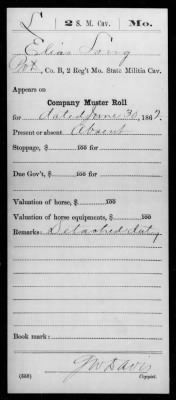 L | 2 S. M. Cav. | Mo.
Elias Long
Pvt, Co. B, 2 Reg't Mo. State Militia Cav.
Appears on
Company Muster Roll
for dated June 30, 1862.
Present or absent Absent
Stoppage, $ 100 for
Due Gov't, $ 100 for
Valuation of horse, $ 100
Valuation of horse equipments, $ 100
Remarks: Detached duty
Book mark:
(358) J W Davis
Copyist.